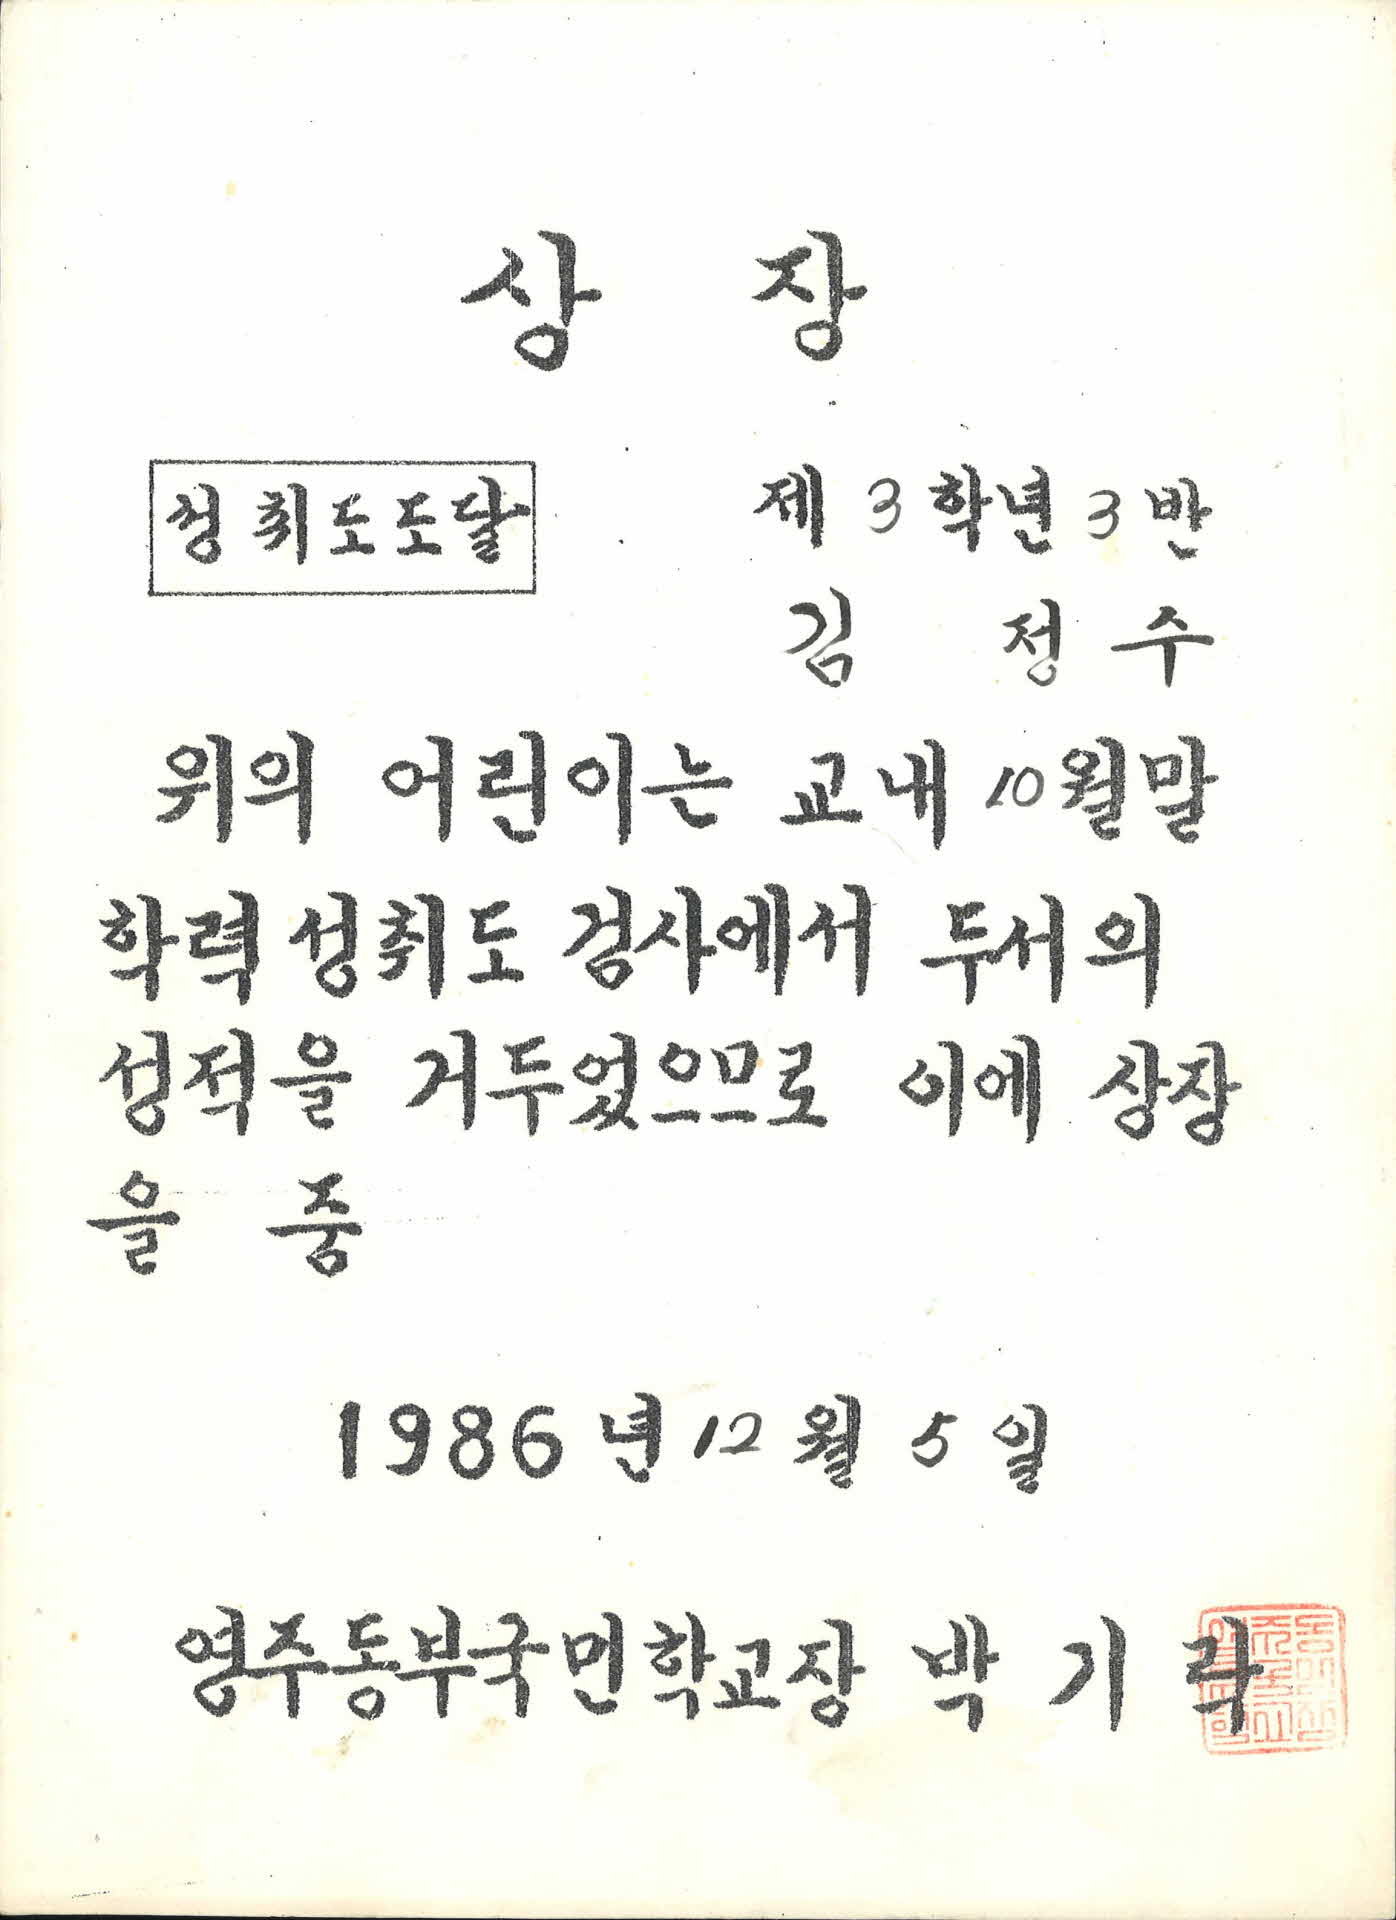 상 장
성취도도달
제 3 학년 3 반
김 정 수
위의 어린이는 교내 10월말
학력 성취도 검사에서 두서의
성적을 거두었으므로 이에 상장
을 줌
1986 년 12 월 5 일
영주동부국민학교장 박 기 락